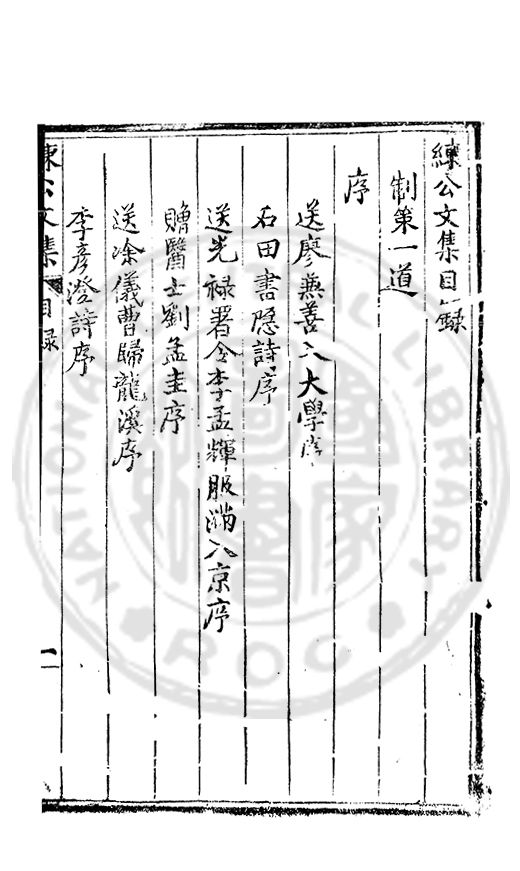 練公文集目錄
制策一道
序
送廖兼善入大學序
石田書隱詩序
送光祿署令李孟輝服滿入京序
贈醫士劉孟圭序
送涂儀曹歸龍溪序
李彥澄詩序
練公文集 目錄 一
NATIONAL CENTRAL LIBRARY
R O C
國家圖書館